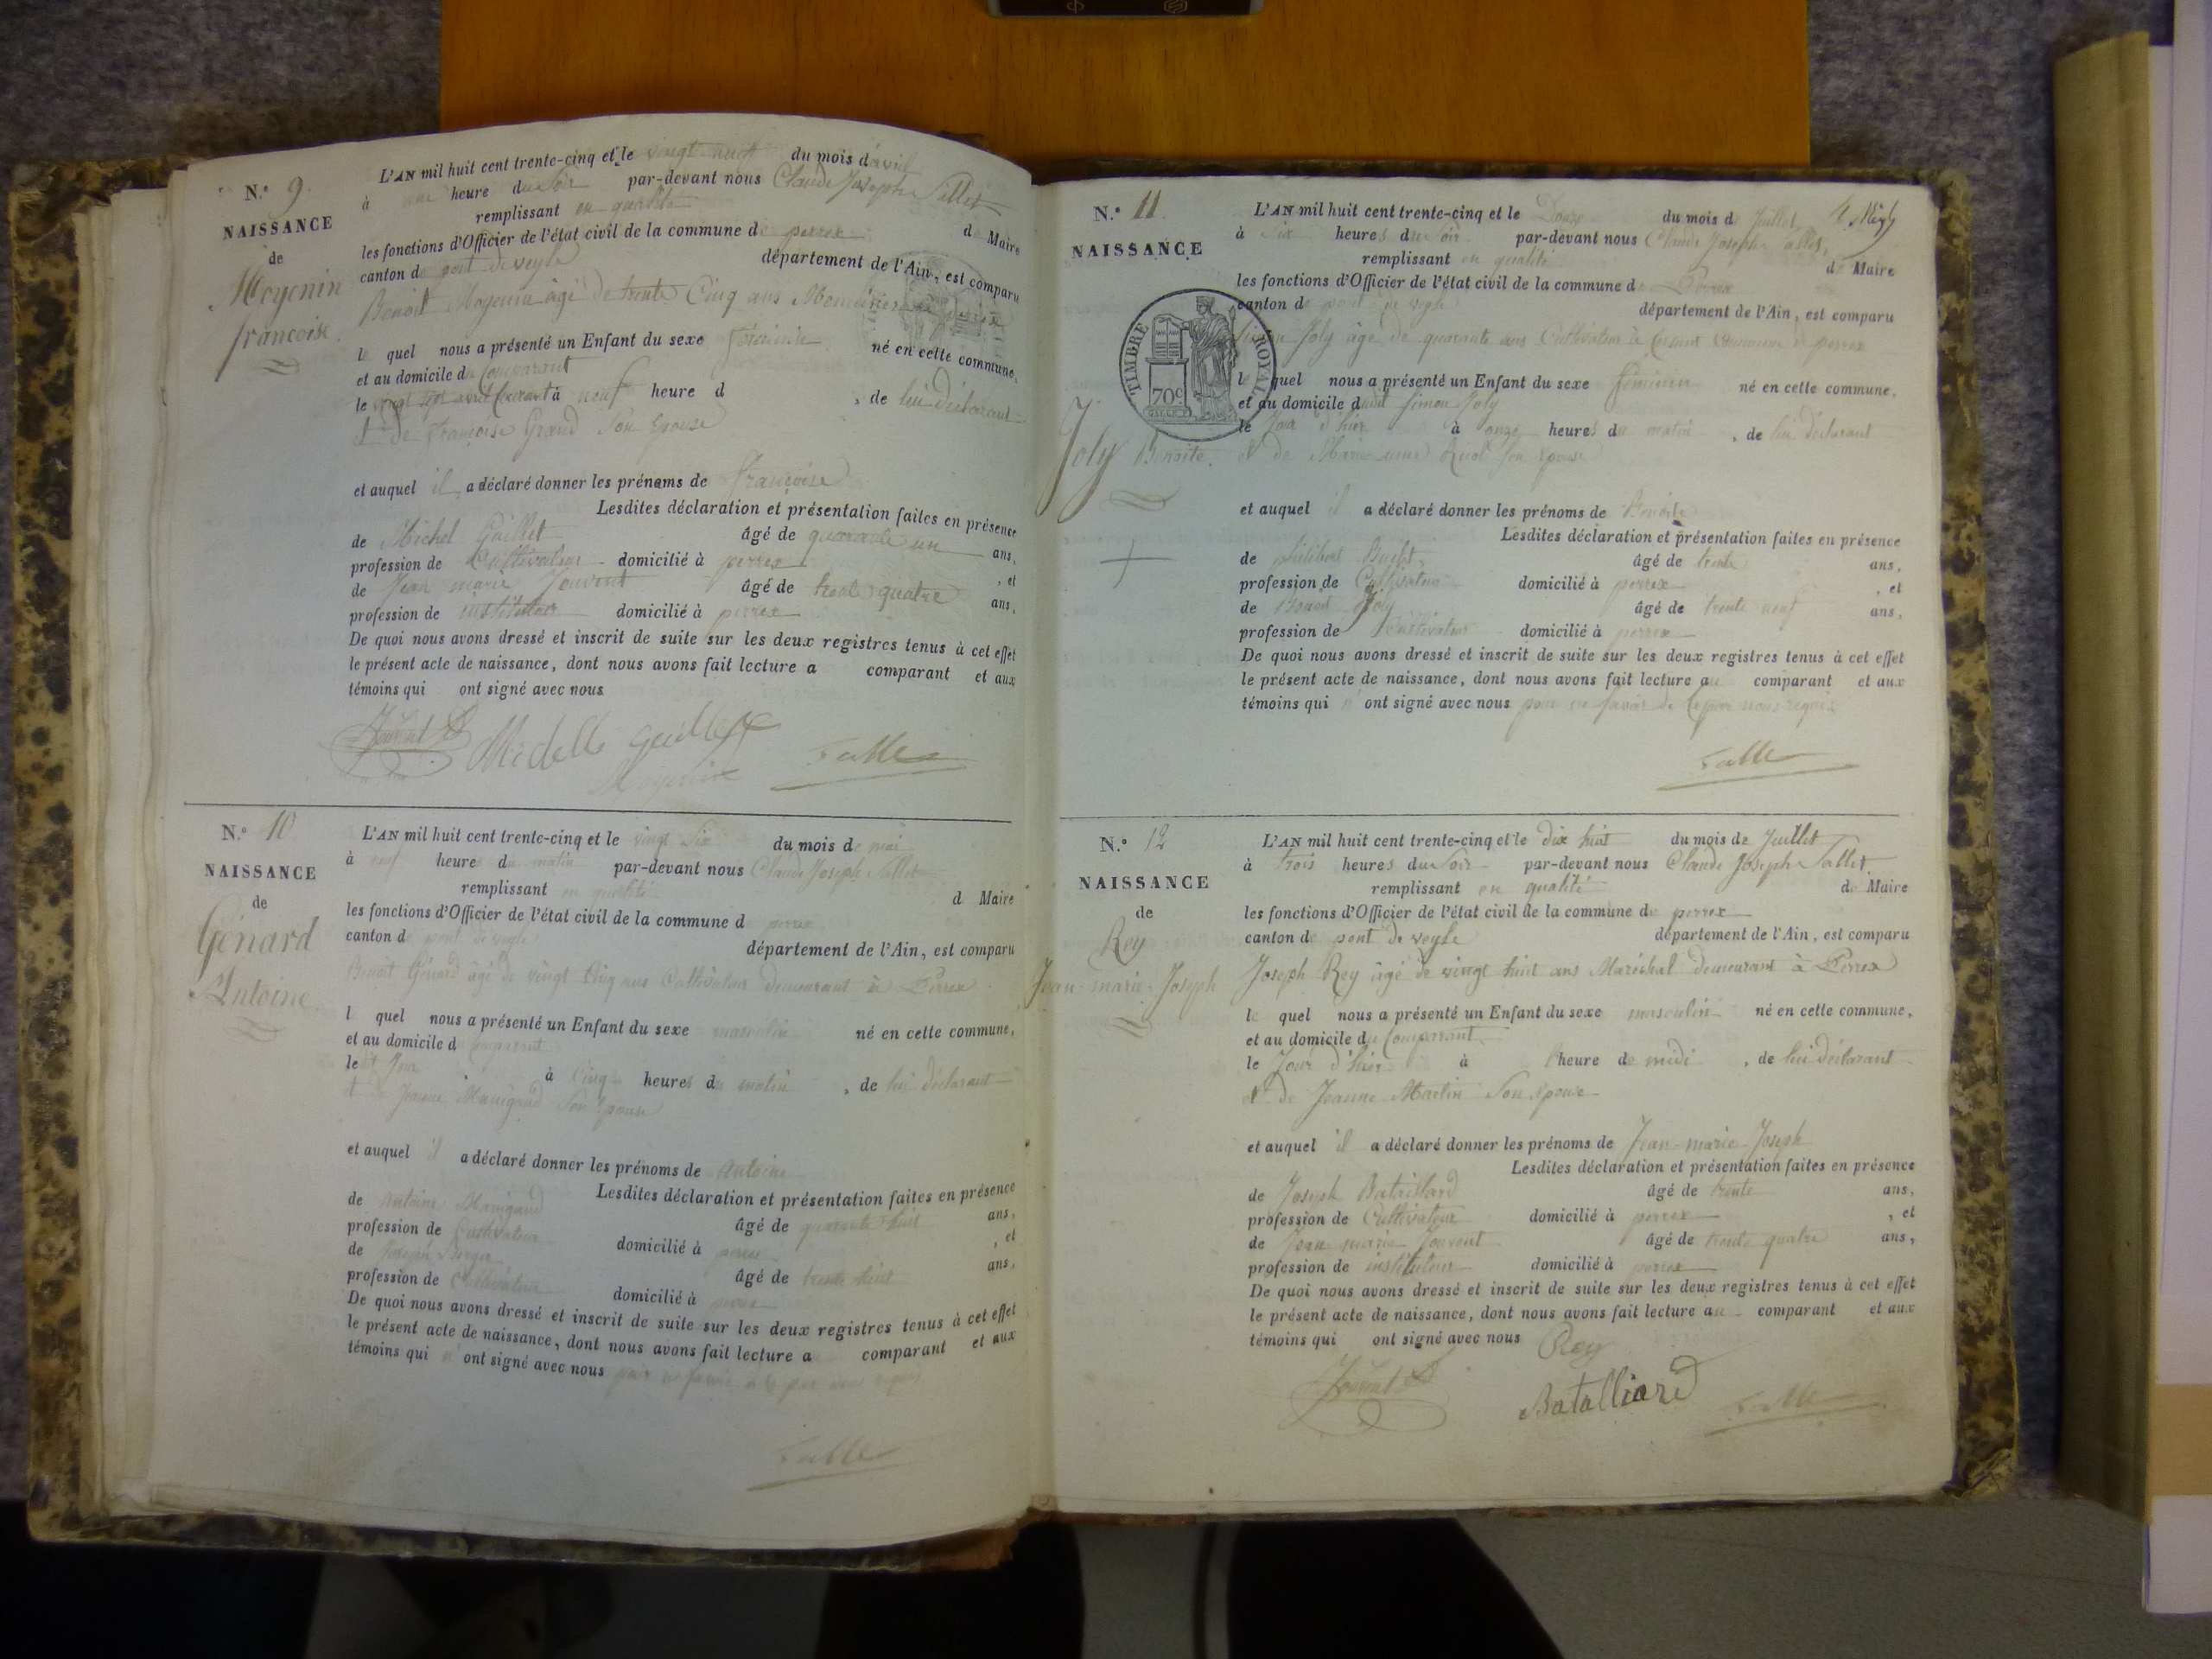 N.º 9.
NAISSANCE
de
Moyenin
françoise
L'AN mil huit cent trente-cinq et le vingt huit du mois d'avril
à une heure du Soir par-devant nous Claude Joseph
remplissant en qualité de Maire
les fonctions d'Officier de l'état civil de la commune de perrex
canton de pont de veyle département de l'Ain, est comparu
Benoit Moyenin âgé de trente Cinq ans
le quel nous a présenté un Enfant du sexe féminin né en cette commune,
et au domicile du Comparant
le à neuf heure d , de lui déclarant
et de françoise Grand Son épouse
et auquel il a déclaré donner les prénoms de françoise
Lesdites déclaration et présentation faites en présence
de Michel Guillet âgé de quarante un ans,
profession de Cultivateur domicilié à perrex , et
de Jean marie Jouvent âgé de trente quatre ans,
profession de instituteur domicilié à perrex
De quoi nous avons dressé et inscrit de suite sur les deux registres tenus à cet effet
le présent acte de naissance, dont nous avons fait lecture a comparant et aux
témoins qui ont signé avec nous
N.º 10
NAISSANCE
de
Génard
Antoine
L'AN mil huit cent trente-cinq et le vingt Six du mois de mai
à neuf heure du matin par-devant nous Claude Joseph
remplissant en qualité d Maire
les fonctions d'Officier de l'état civil de la commune d perrex
canton de pont de veyle département de l'Ain, est comparu
Benoit Génard âgé de vingt Cinq ans Cultivateur demeurant à Perrex
l quel nous a présenté un Enfant du sexe masculin né en cette commune,
et au domicile d comparant
le à Cinq heures du matin , de lui déclarant
et de Jeanne Manigand Son épouse
et auquel il a déclaré donner les prénoms de Antoine
Lesdites déclaration et présentation faites en présence
de Antoine Manigand âgé de quarante huit ans,
profession de Cultivateur domicilié à perrex , et
de âgé de trente huit ans,
profession de Cultivateur domicilié à perrex
De quoi nous avons dressé et inscrit de suite sur les deux registres tenus à cet effet
le présent acte de naissance, dont nous avons fait lecture a comparant et aux
témoins qui n'ont signé avec nous pour ne savoir de ce par nous requis
N.º 11
NAISSANCE
TIMBRE ROYAL
70c
Joly Benoite.
L'AN mil huit cent trente-cinq et le Douze du mois de Juillet
à Six heures du Soir par-devant nous Claude Joseph
remplissant en qualité de Maire
les fonctions d'Officier de l'état civil de la commune de Perrex
canton de pont de veyle département de l'Ain, est comparu
Simon Joly âgé de quarante ans Cultivateur Commune de perrex
le quel nous a présenté un Enfant du sexe féminin né en cette commune,
et au domicile dudit Simon Joly
le Jour d'hier à onze heures du matin , de lui déclarant
et de Marie Son épouse
et auquel il a déclaré donner les prénoms de Benoite
Lesdites déclaration et présentation faites en présence
de philibert Buchet âgé de trente ans,
profession de Cultivateur domicilié à perrex , et
de Benoit Joly âgé de trente neuf ans,
profession de Cultivateur domicilié à perrex
De quoi nous avons dressé et inscrit de suite sur les deux registres tenus à cet effet
le présent acte de naissance, dont nous avons fait lecture au comparant et aux
témoins qui n'ont signé avec nous pour ne savoir de ce par nous requis
N.º 12
NAISSANCE
de
Rey
Jean-marie-Joseph
L'AN mil huit cent trente-cinq et le dix huit du mois de Juillet
à trois heures du Soir par-devant nous Claude Joseph
remplissant en qualité de Maire
les fonctions d'Officier de l'état civil de la commune de perrex
canton de pont de veyle département de l'Ain, est comparu
Joseph Rey âgé de vingt huit ans Maréchal demeurant à Perrex
le quel nous a présenté un Enfant du sexe masculin né en cette commune,
et au domicile du Comparant
le Jour d'hier à l'heure de midi , de lui déclarant
et de Jeanne Martin Son épouse
et auquel il a déclaré donner les prénoms de Jean-marie-Joseph
Lesdites déclaration et présentation faites en présence
de Joseph Bataillard âgé de trente ans,
profession de Cultivateur domicilié à perrex , et
de Jean marie Jouvent âgé de trente quatre ans,
profession de instituteur domicilié à perrex
De quoi nous avons dressé et inscrit de suite sur les deux registres tenus à cet effet
le présent acte de naissance, dont nous avons fait lecture au comparant et aux
témoins qui ont signé avec nous Rey
Batalliard